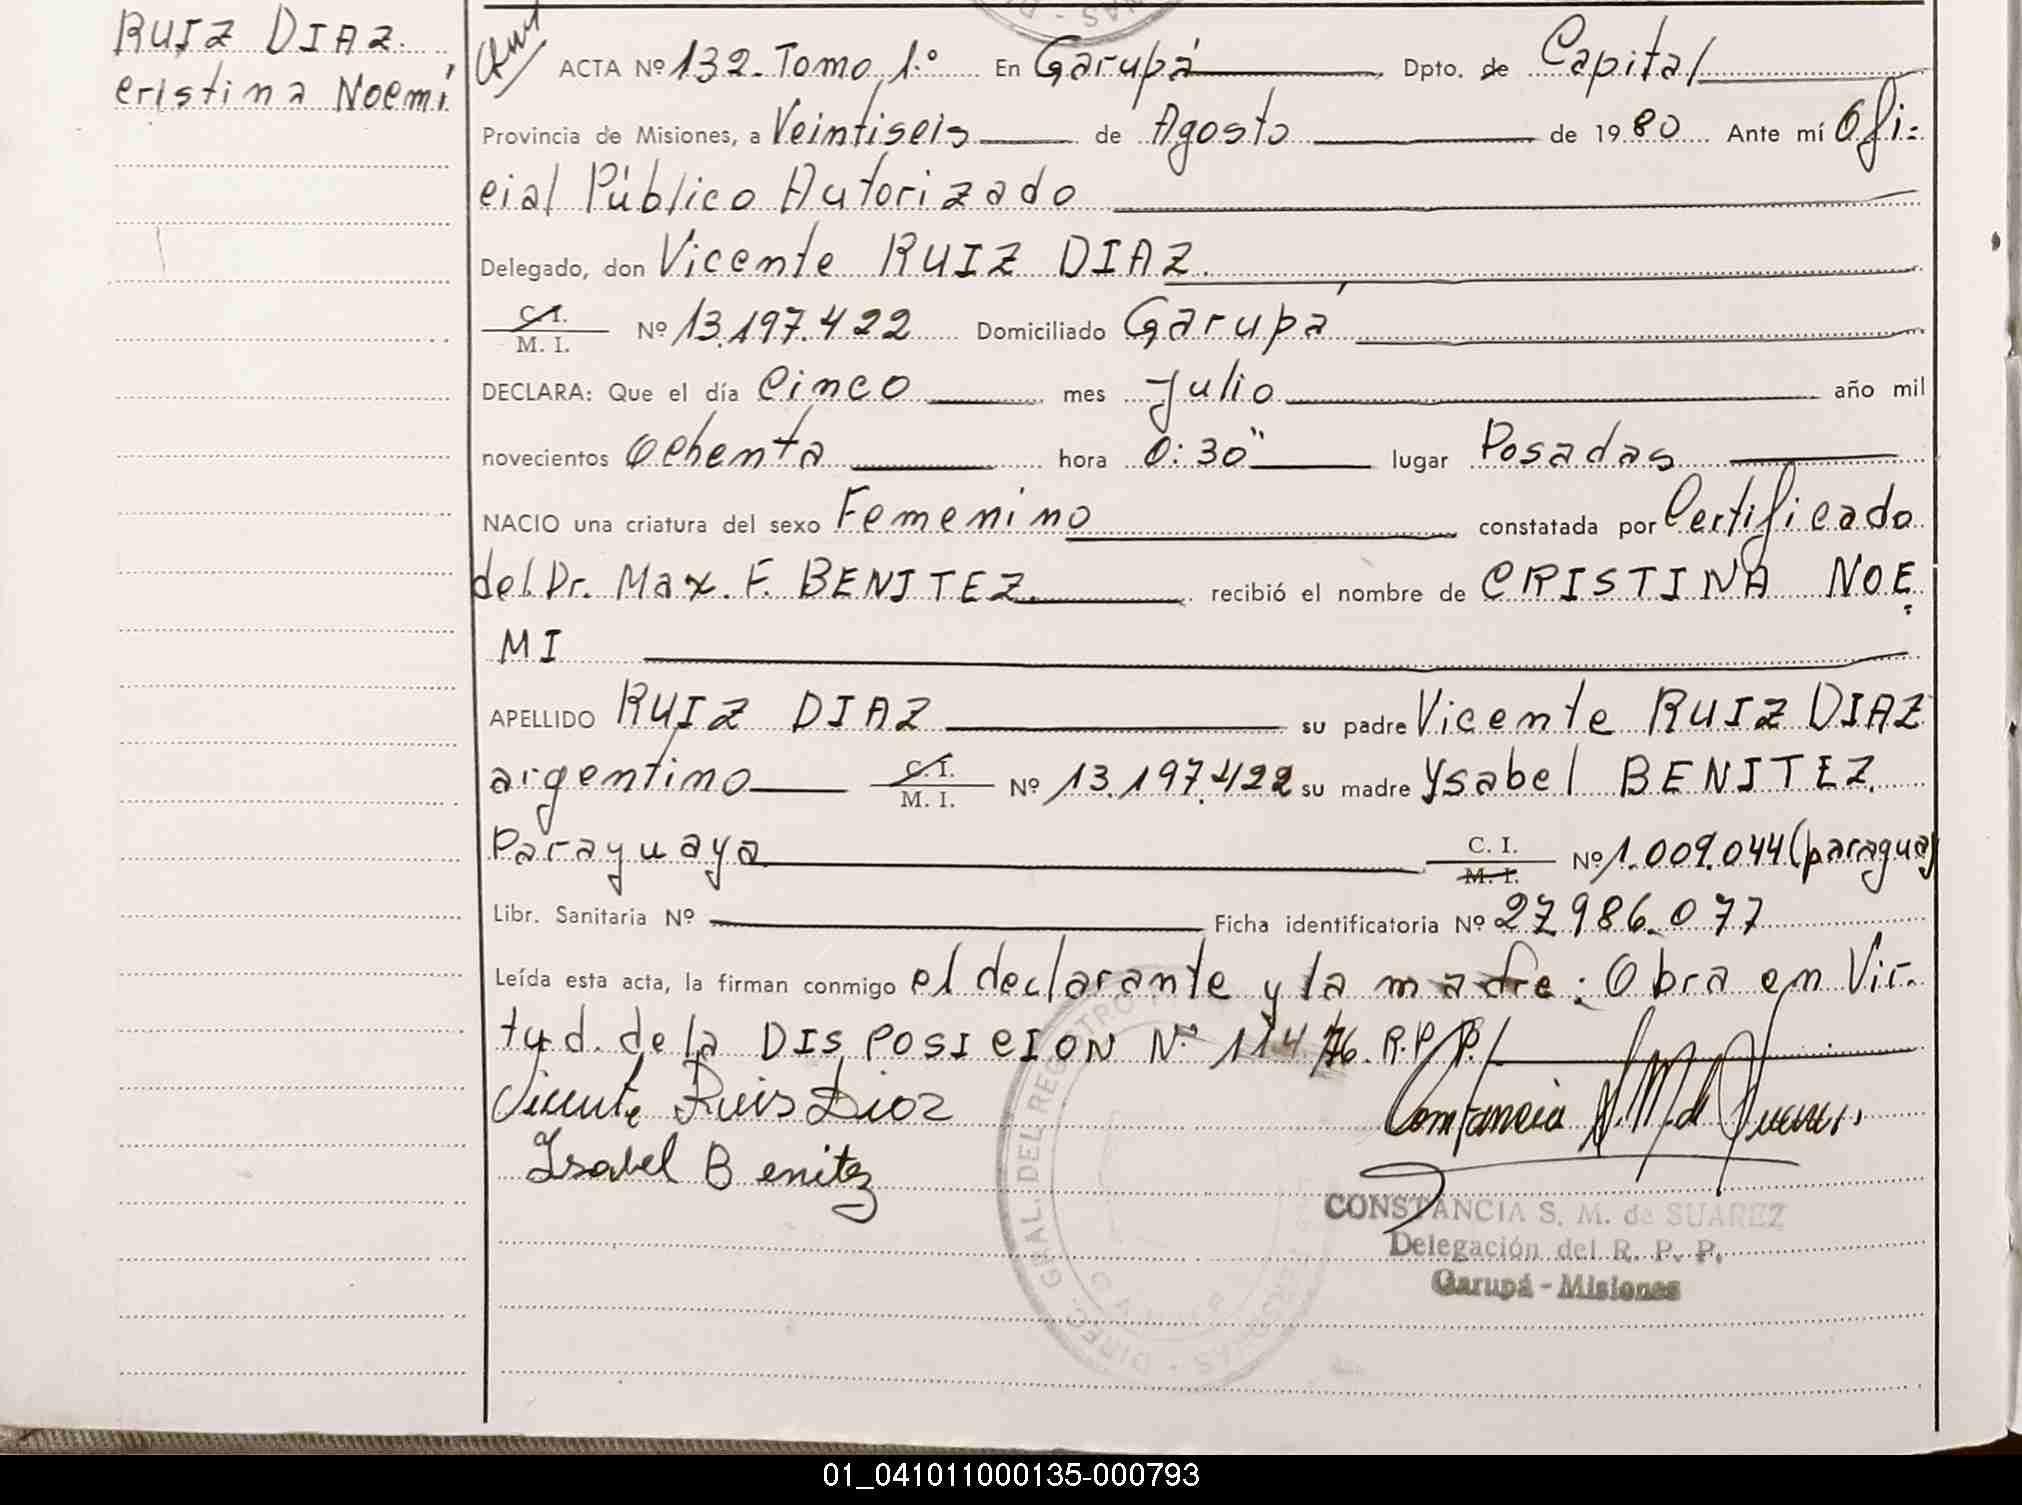 RUIZ DIAZ.
Cristina Noemí
ACTA Nº 132. Tomo 1.º En Garupá Dpto. de Capital
Provincia de Misiones, a Veintiseis de Agosto de 1980 Ante mí Ofi-
cial Público Autorizado
Delegado, don Vicente RUIZ DIAZ.
C. I.
M. I. Nº 13.197.422 Domiciliado Garupá
DECLARA: Que el día Cinco mes Julio año mil
novecientos Ochenta hora 0:30" lugar Posadas
NACIO una criatura del sexo Femenino constatada por Certificado
del Dr. Max. F. BENITEZ. recibió el nombre de CRISTINA NOE
MI
APELLIDO RUIZ DIAZ su padre Vicente RUIZ DIAZ
argentino C. I.
M. I. Nº 13.197.422 su madre Ysabel BENITEZ.
Paraguaya C. I.
M. I. Nº 1.009.044 (paragua)
Libr. Sanitaria Nº Ficha identificatoria Nº 27.986.077
Leída esta acta, la firman conmigo el declarante y la madre: Obra en Vir-
tud. de la DISPOSICION Nº 114/76. R.P.P./
Vicente Ruis Dioz
Isabel Benitez
Constancia S. M. de
CONSTANCIA S. M. de SUAREZ
Delegación del R. P. P.
Garupá - Misiones
DIREC. GRAL. DEL REGISTRO
01_041011000135-000793